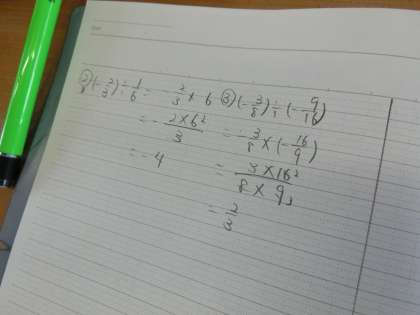 ② (-2/3) ÷ 1/6 = -2/3 × 6
= -2×6²/3
= -4
③ (-3/8) ÷ (-9/16)
= -3/8 × (-16/9)
= 3×16²/8×9₃
= 2/3